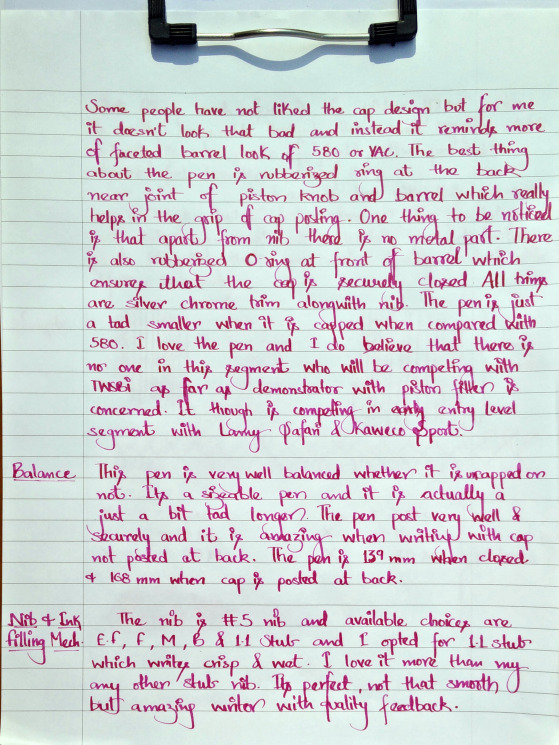 Some people have not liked the cap design but for me
it doesn't look that bad and instead it reminds more
of faceted barrel look of 580 or VAC. The best thing
about the pen is rubberized ring at the back
near joint of piston knob and barrel which really
helps in the grip of cap posting. One thing to be noticed
is that apart from nib there is no metal part. There
is also rubberized O ring at front of barrel which
ensures that the cap is securely closed All trims
are silver chrome trim alongwith nib. The pen is just
a tad smaller when it is capped when compared with
580. I love the pen and I do believe that there is
no one in this segment who will be competing with
TWSBI as far as demonstrator with piston filler is
concerned. It though is competing in entry level
segment with Lamy Safari & Kaweco Sport.
Balance This pen is very well balanced whether it is uncapped or
not. Its a sizeable pen and it is actually a
just a bit tad longer. The pen post very well &
securely and it is amazing when writing with cap
not posted at back. The pen is 139 mm when closed
& 168 mm when cap is posted at back.
Nib & Ink The nib is #5 nib and available choices are
filling Mech. E.F, F, M, B & 1.1 Stub and I opted for 1.1 stub
which writes crisp & wet. I love it more than my
any other stub nib. Its perfect, not that smooth
but amazing writer with quality feedback.